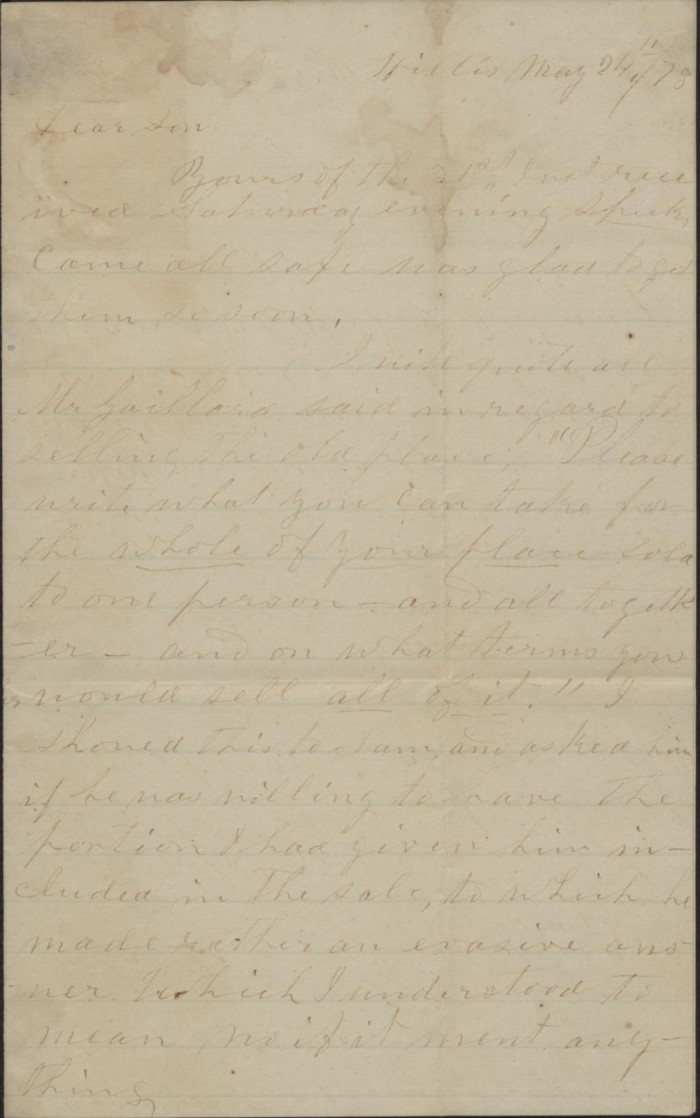 Willis May 24th /78
Dear son
Yours of the 21st Inst rece
ived Saturday evening
Came all safe was glad to get
them so soon,
I will quote all
Mr Gaillard said in regard to
selling the old place, "Please
write what you can take for
the whole of your place sold
to one person - and all togeth
-er - and on what terms you
would sell all of it." I
showed this to Sam, and asked him
if he was willing to have the
portion I had given him in-
cluded in the sale, to which he
made rather an evasive ans-
wer which I understood to
mean no if it ment any-
thing